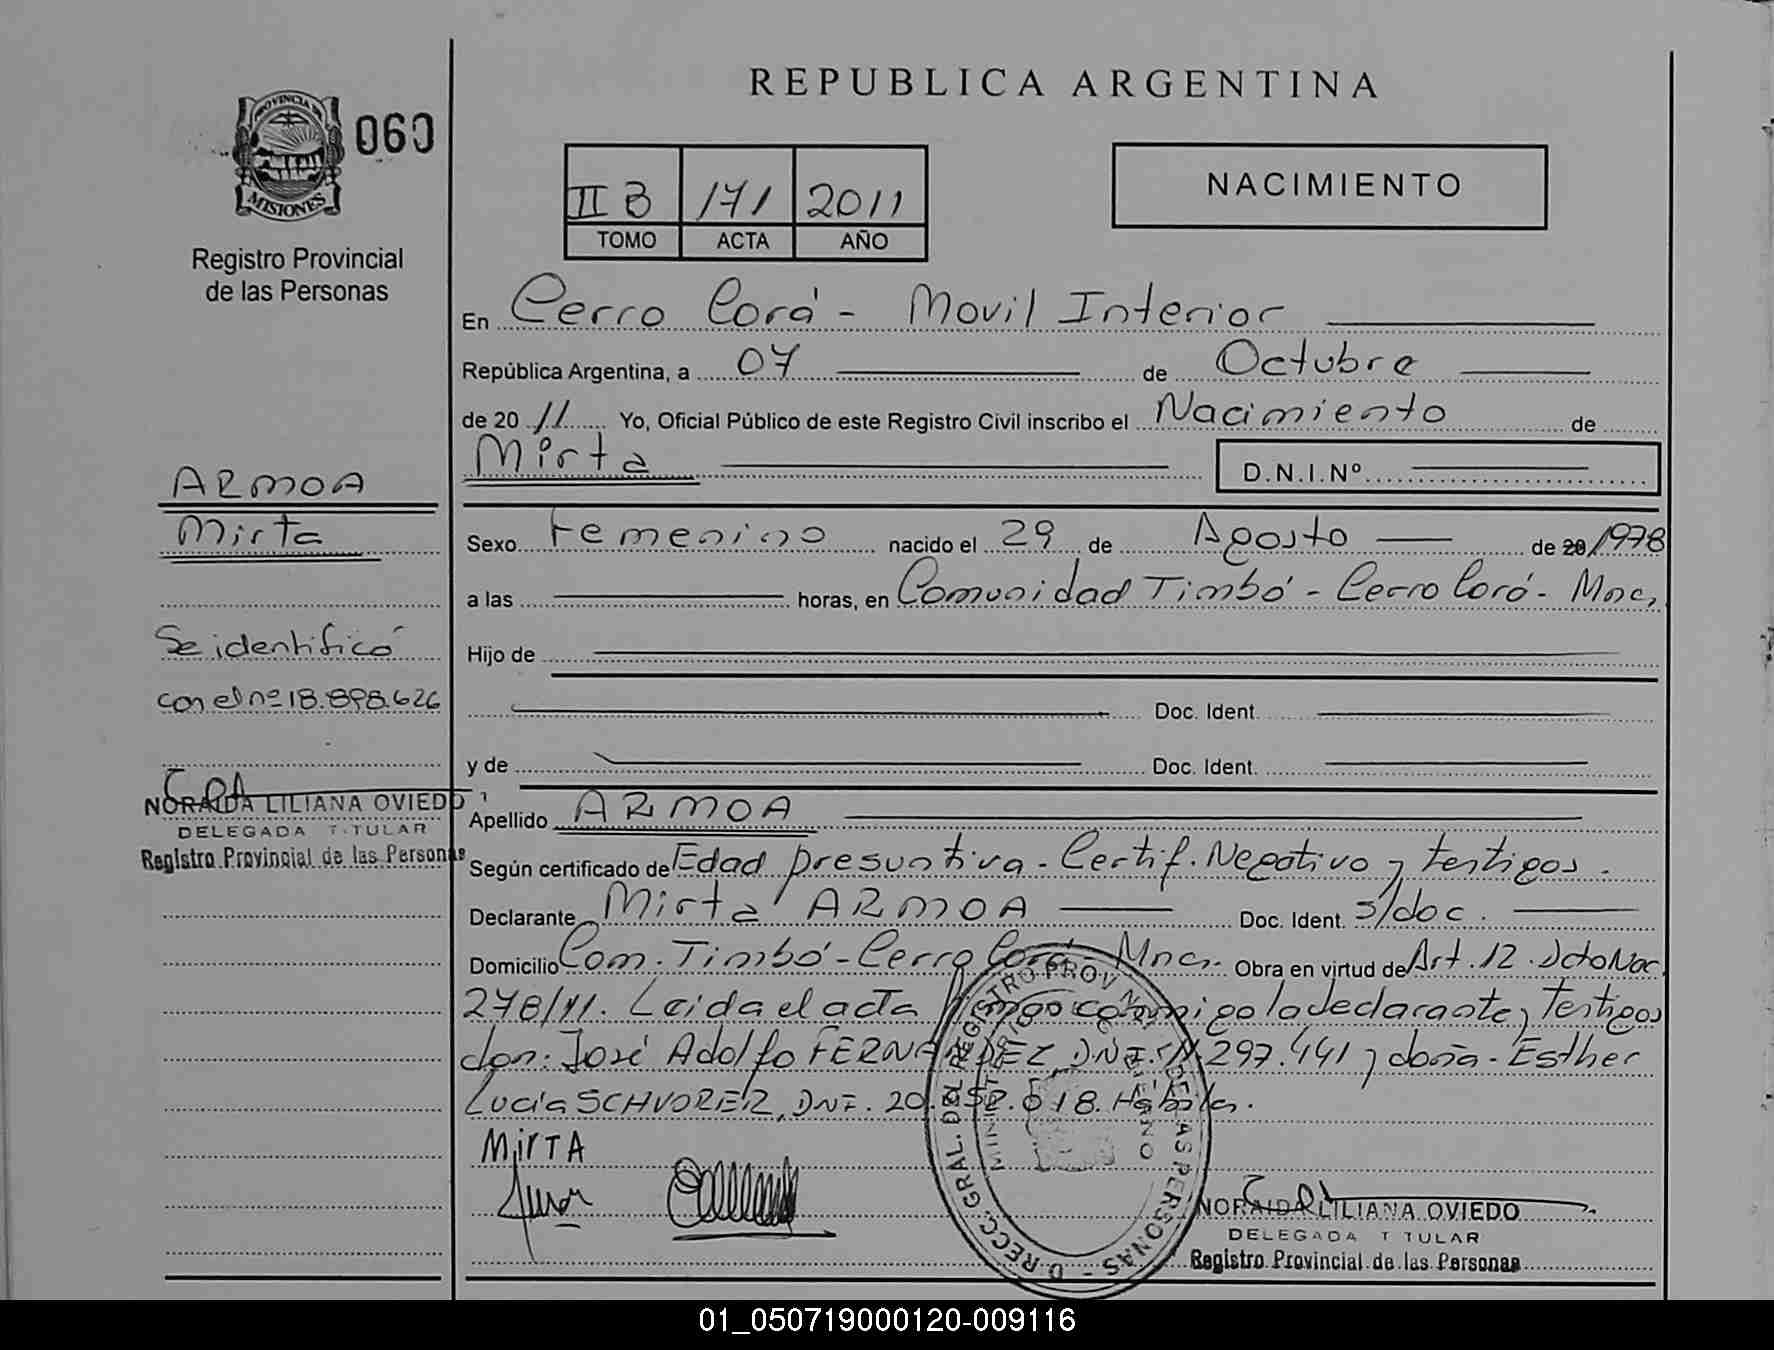 REPUBLICA ARGENTINA
PROVINCIA DE
MISIONES
060
Registro Provincial
de las Personas
II B 171 2011
TOMO ACTA AÑO
NACIMIENTO
En Cerro Corá - Movil Interior
República Argentina, a 07 de Octubre
de 2011 Yo, Oficial Público de este Registro Civil inscribo el Nacimiento de
Mirta D.N.I.Nº
ARMOA
Mirta
Sexo Femenino nacido el 29 de Agosto de 20/1978
a las horas, en Comunidad Timbó - Cerro Corá - Mnes,
Se identificó
con el nº 18.898.626
Hijo de
Doc. Ident.
y de Doc. Ident.
NORAIDA LILIANA OVIEDO
DELEGADA TITULAR
Registro Provincial de las Personas
Apellido ARMOA
Según certificado de Edad presuntiva - Certif. Negativo y testigos.
Declarante Mirta ARMOA Doc. Ident. s/doc.
Domicilio Com. Timbó - Cerro Corá - Mnes. Obra en virtud de Art. 12. Dcto Nac.
278/11. Leida el acta firman conmigo la declarante y testigos
don: José Adolfo FERNANDEZ DNI. 297.441 y doña - Esther
Lucía SCHVORER, DNI. 20. 018. Hábiles.
MirTA
NORAIDA LILIANA OVIEDO
DELEGADA TITULAR
Registro Provincial de las Personas
DIRECC. GRAL. DEL REGISTRO PROV DE LAS PERSONAS -
01_050719000120-009116